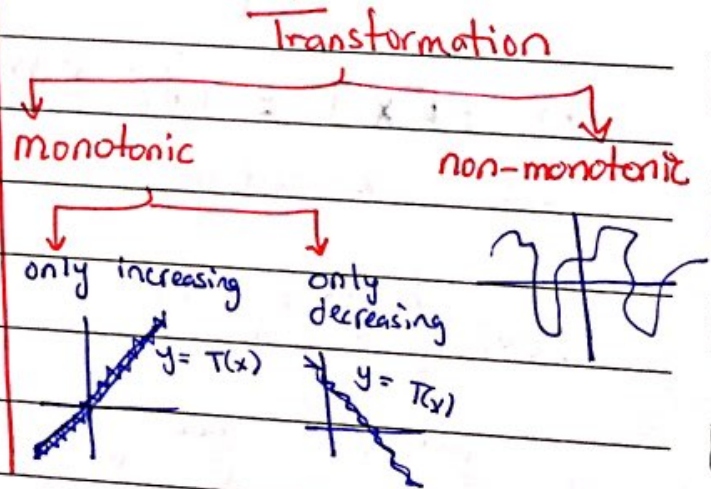 Transformation
monotonic
non-monotonic
only increasing
only
decreasing
y = T(x)
y = T(x)